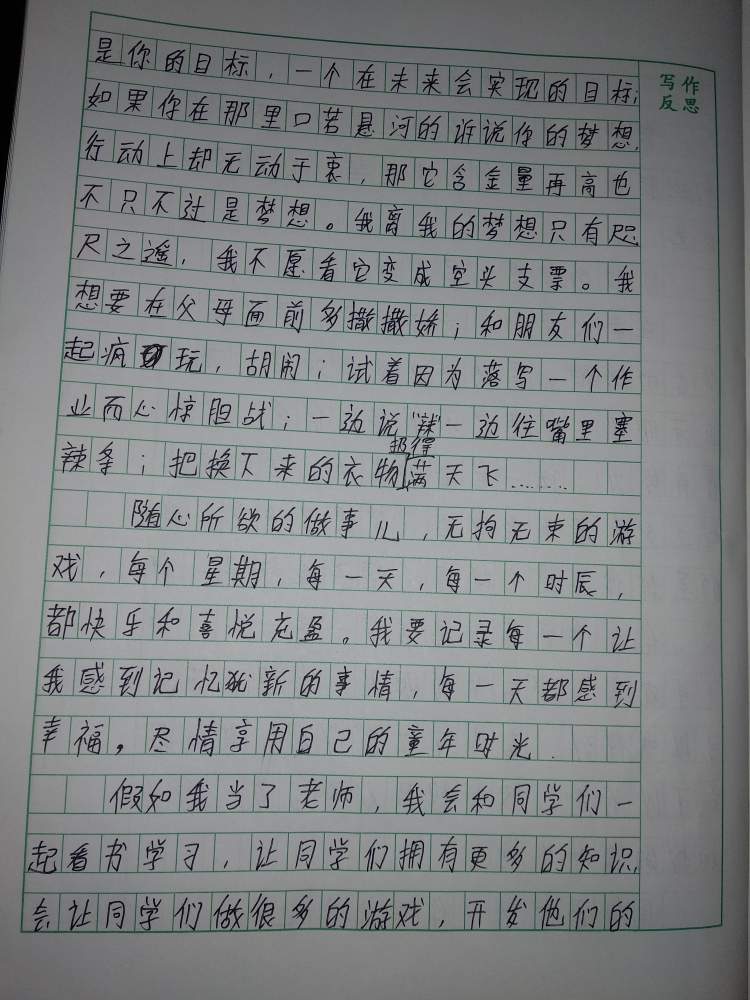 是你的目标，一个在未来会实现的目标；
如果你在那里口若悬河的诉说你的梦想，
行动上却无动于衷，那它含金量再高也
不只不过是梦想。我离我的梦想只有咫
尺之遥，我不愿看它变成空头支票。我
想要在父母面前多撒撒娇；和朋友们一
起疯玩，胡闹；试着因为落写一个作
业而心惊胆战；一边说“辣”一边往嘴里塞
辣条；把换下来的衣物扔得满天飞……
随心所欲的做事儿，无拘无束的游
戏，每个星期，每一天，每一个时辰，
都快乐和喜悦充盈。我要记录每一个让
我感到记忆犹新的事情，每一天都感到
幸福，尽情享用自己的童年时光
假如我当了老师，我会和同学们一
起看书学习，让同学们拥有更多的知识，
会让同学们做很多的游戏，开发他们的
写作
反思